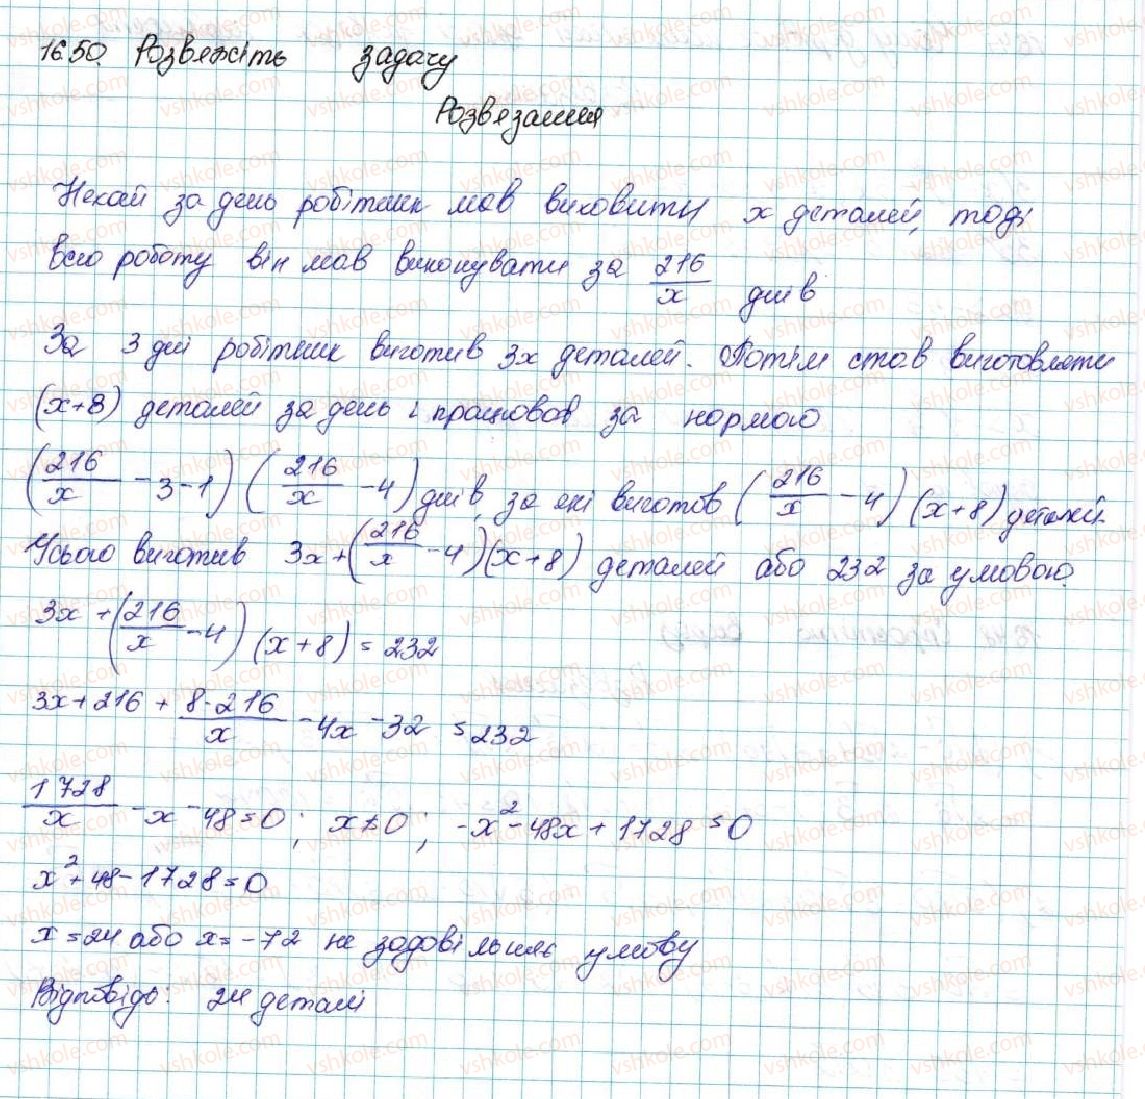 16.50. Розвяжіть задачу
Розвязання
Нехай за день робітник мав виховити x деталей, тоді
всю роботу він мав виконувати за 216/x днів
За 3 дні робітник виготив 3x деталей. Потім став виготовляти
(x+8) деталей за день і працював за нормою
(216/x - 3 - 1) (216/x - 4) днів, за які виготов (216/x - 4) (x+8) деталей.
Усього виготив 3x + (216/x - 4)(x+8) деталей або 232 за умовою.
3x + (216/x - 4) (x+8) = 232
3x + 216 + 8·216/x - 4x - 32 = 232
1728/x - x - 48 = 0; x ≠ 0; -x² - 48x + 1728 = 0
x² + 48 - 1728 = 0
x = 24 або x = -72 не задовільняє умову
Відповідь: 24 деталі